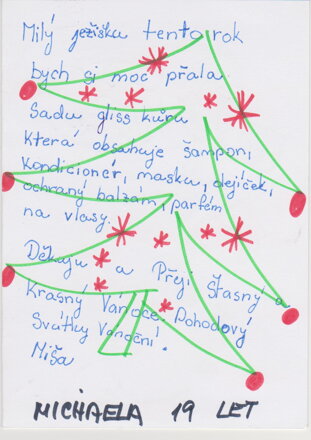 Milý ježíšku tento rok
bych si moc přála
Sadu gliss kúru
která obsahuje šampon,
kondicionér, masku, olejíček,
ochraný balzám, parfém
na vlasy.
Děkuju a Přeji Štasný a
Krasný Vánoce. Pohodový
Svátky Vánoční.
Míša
MICHAELA 19 LET